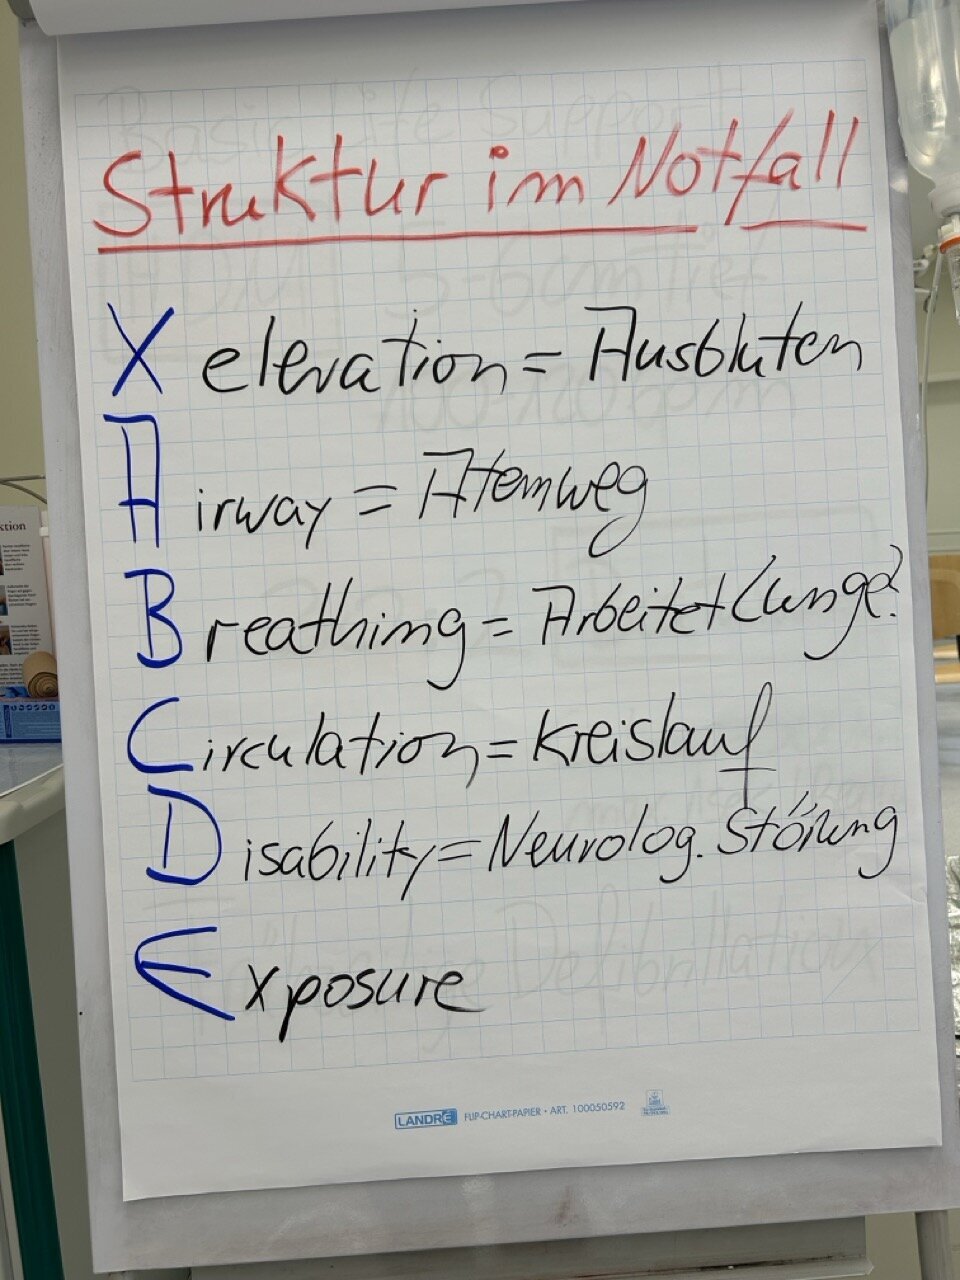 Struktur im Notfall
X elevation = Ausbluten
Airway = Atemweg
Breathing = Arbeitet Lunge?
Circulation = Kreislauf
Disability = Neurolog. Störung
Exposure
LANDRÉ FLIP-CHART-PAPIER • ART. 100050592